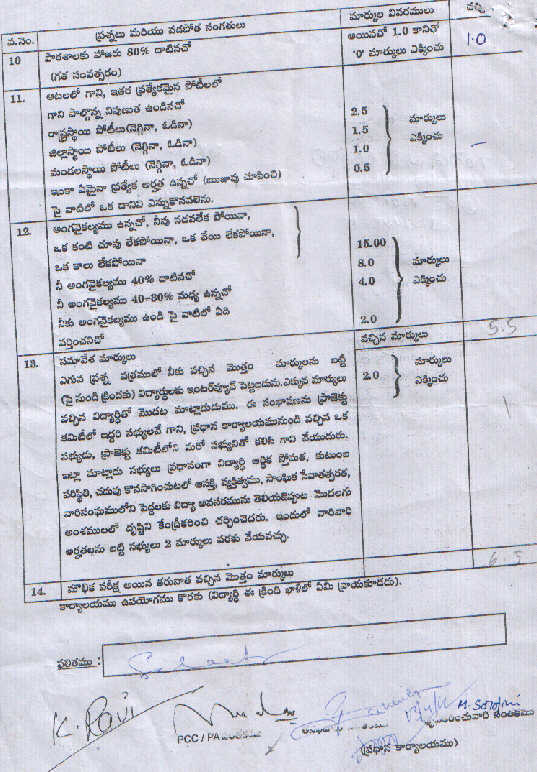 వ.సెం. ప్రశ్నలు మరియు వడపోత సంగతులు మార్కుల వివరములు
10 పాఠశాలకు హాజరు 80% దాటినచో అయినచో 1.0 కానిచో 1.0
(గత సంవత్సరం) '0' మార్కులు ఎక్కించు
11. ఆటలలో గాని, ఇతర ప్రత్యేకమైన పోటీలలో
గాని పాల్గొన్న నిపుణుత ఉండినచో
రాష్ట్రస్థాయి పోటీలు(నెగ్గినా, ఓడినా) 2.5 మార్కులు
జిల్లాస్థాయి పోటీలు (నెగ్గినా, ఓడినా) 1.5 ఎక్కించు
మండలస్థాయి పోటీలు (నెగ్గినా, ఓడినా) 1.0
ఇంకా ఏమైనా ప్రత్యేక అర్హత ఉన్నచో (ఋజువు చూపించి) 0.5
పై వాటిలో ఒక దానిని ఎన్నుకొనవలెను.
12. అంగవైకల్యము ఉన్నచో, నీవు నడవలేక పోయినా,
ఒక కంటి చూపు లేకపోయినా, ఒక చేయి లేకపోయినా,
ఒక కాలు లేకపోయినా 15.00
నీ అంగవైకల్యము 40% దాటినచో 8.0 మార్కులు
నీ అంగవైకల్యము 40-80% మధ్య ఉన్నచో 4.0 ఎక్కించు
నీకు అంగవైకల్యము ఉండి పై వాటిలో ఏది
వర్తించనిచో 2.0
వచ్చిన మార్కులు 5.5
13. సమావేశ మార్కులు
ఎగువ ప్రశ్న పత్రములో నీకు వచ్చిన మొత్తం మార్కులను బట్టి 2.0 మార్కులు
(పై నుండి క్రిందకు) విద్యార్థులకు ఇంటర్వ్యూకి పెట్టబడును.ఎక్కువ మార్కులు ఎక్కించు
వచ్చిన విద్యార్థితో మొదట మాట్లాడుదుము. ఈ సంభాషణను ప్రాజెక్టు
కమిటీలో ఇద్దరి సభ్యులచే గాని, ప్రధాన కార్యాలయమునుండి వచ్చిన ఒక
సభ్యుడు, ప్రాజెక్టు కమిటీలోని మరో సభ్యునితో కలిసి గాని చేయుదురు.
ఇట్లా మాట్లాడు సభ్యులు ప్రధానంగా విద్యార్థి ఆర్థిక స్తోమత, కుటుంబ
పరిస్థితి, చదువు కొనసాగించుటలో ఆసక్తి, వ్యక్తిత్వము, సాంఘిక సేవాతత్పరత,
వారిసంఘములోని పెద్దలకు విద్యా అవసరమును తెలియజెప్పుట మొదలగు
అంశములలో దృష్టిని కేంద్రీకరించి చర్చించెదరు. ఇందులో వారివారి
అర్హతలను బట్టి సభ్యులు 2 మార్కులు వరకు వేయవచ్చు.
14. మౌఖిక పరీక్ష అయిన తరువాత వచ్చిన మొత్తం మార్కులు 6.5
కార్యాలయము ఉపయోగము కొరకు (విద్యార్థి ఈ క్రింది ఖాళీలో ఏమీ వ్రాయకూడదు).
ఫలితము :
K. Ravi
M. Sarojni
PCC / PA సంతకము
(ప్రధాన కార్యాలయము)